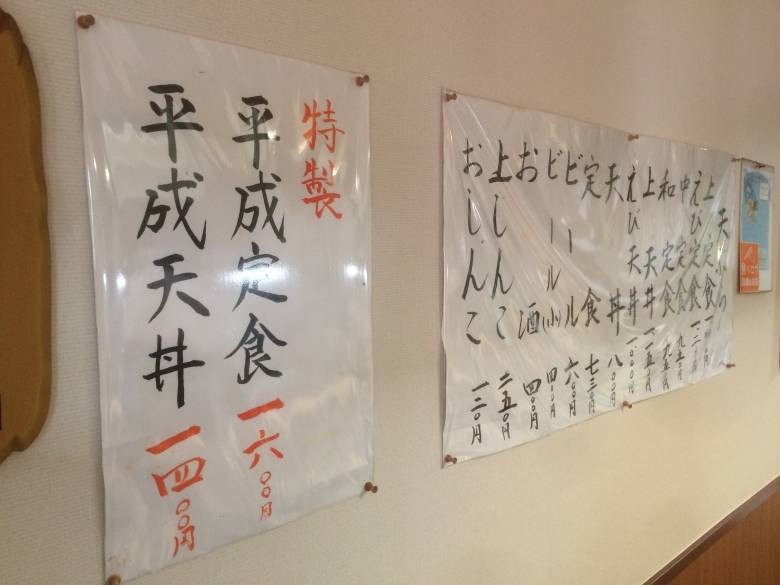 特製
平成定食 一六〇〇円
平成天丼 一四〇〇円
天ぷら
上定食
えび定食
中定食 九五〇円
和定食 九五〇円
上天丼 一一五〇円
えび天丼 一〇〇〇円
天丼 八〇〇円
定食 七三〇円
ビール 六〇〇円
ビール小 四〇〇円
お酒 四〇〇円
上しんこ 二五〇円
おしんこ 一二〇円